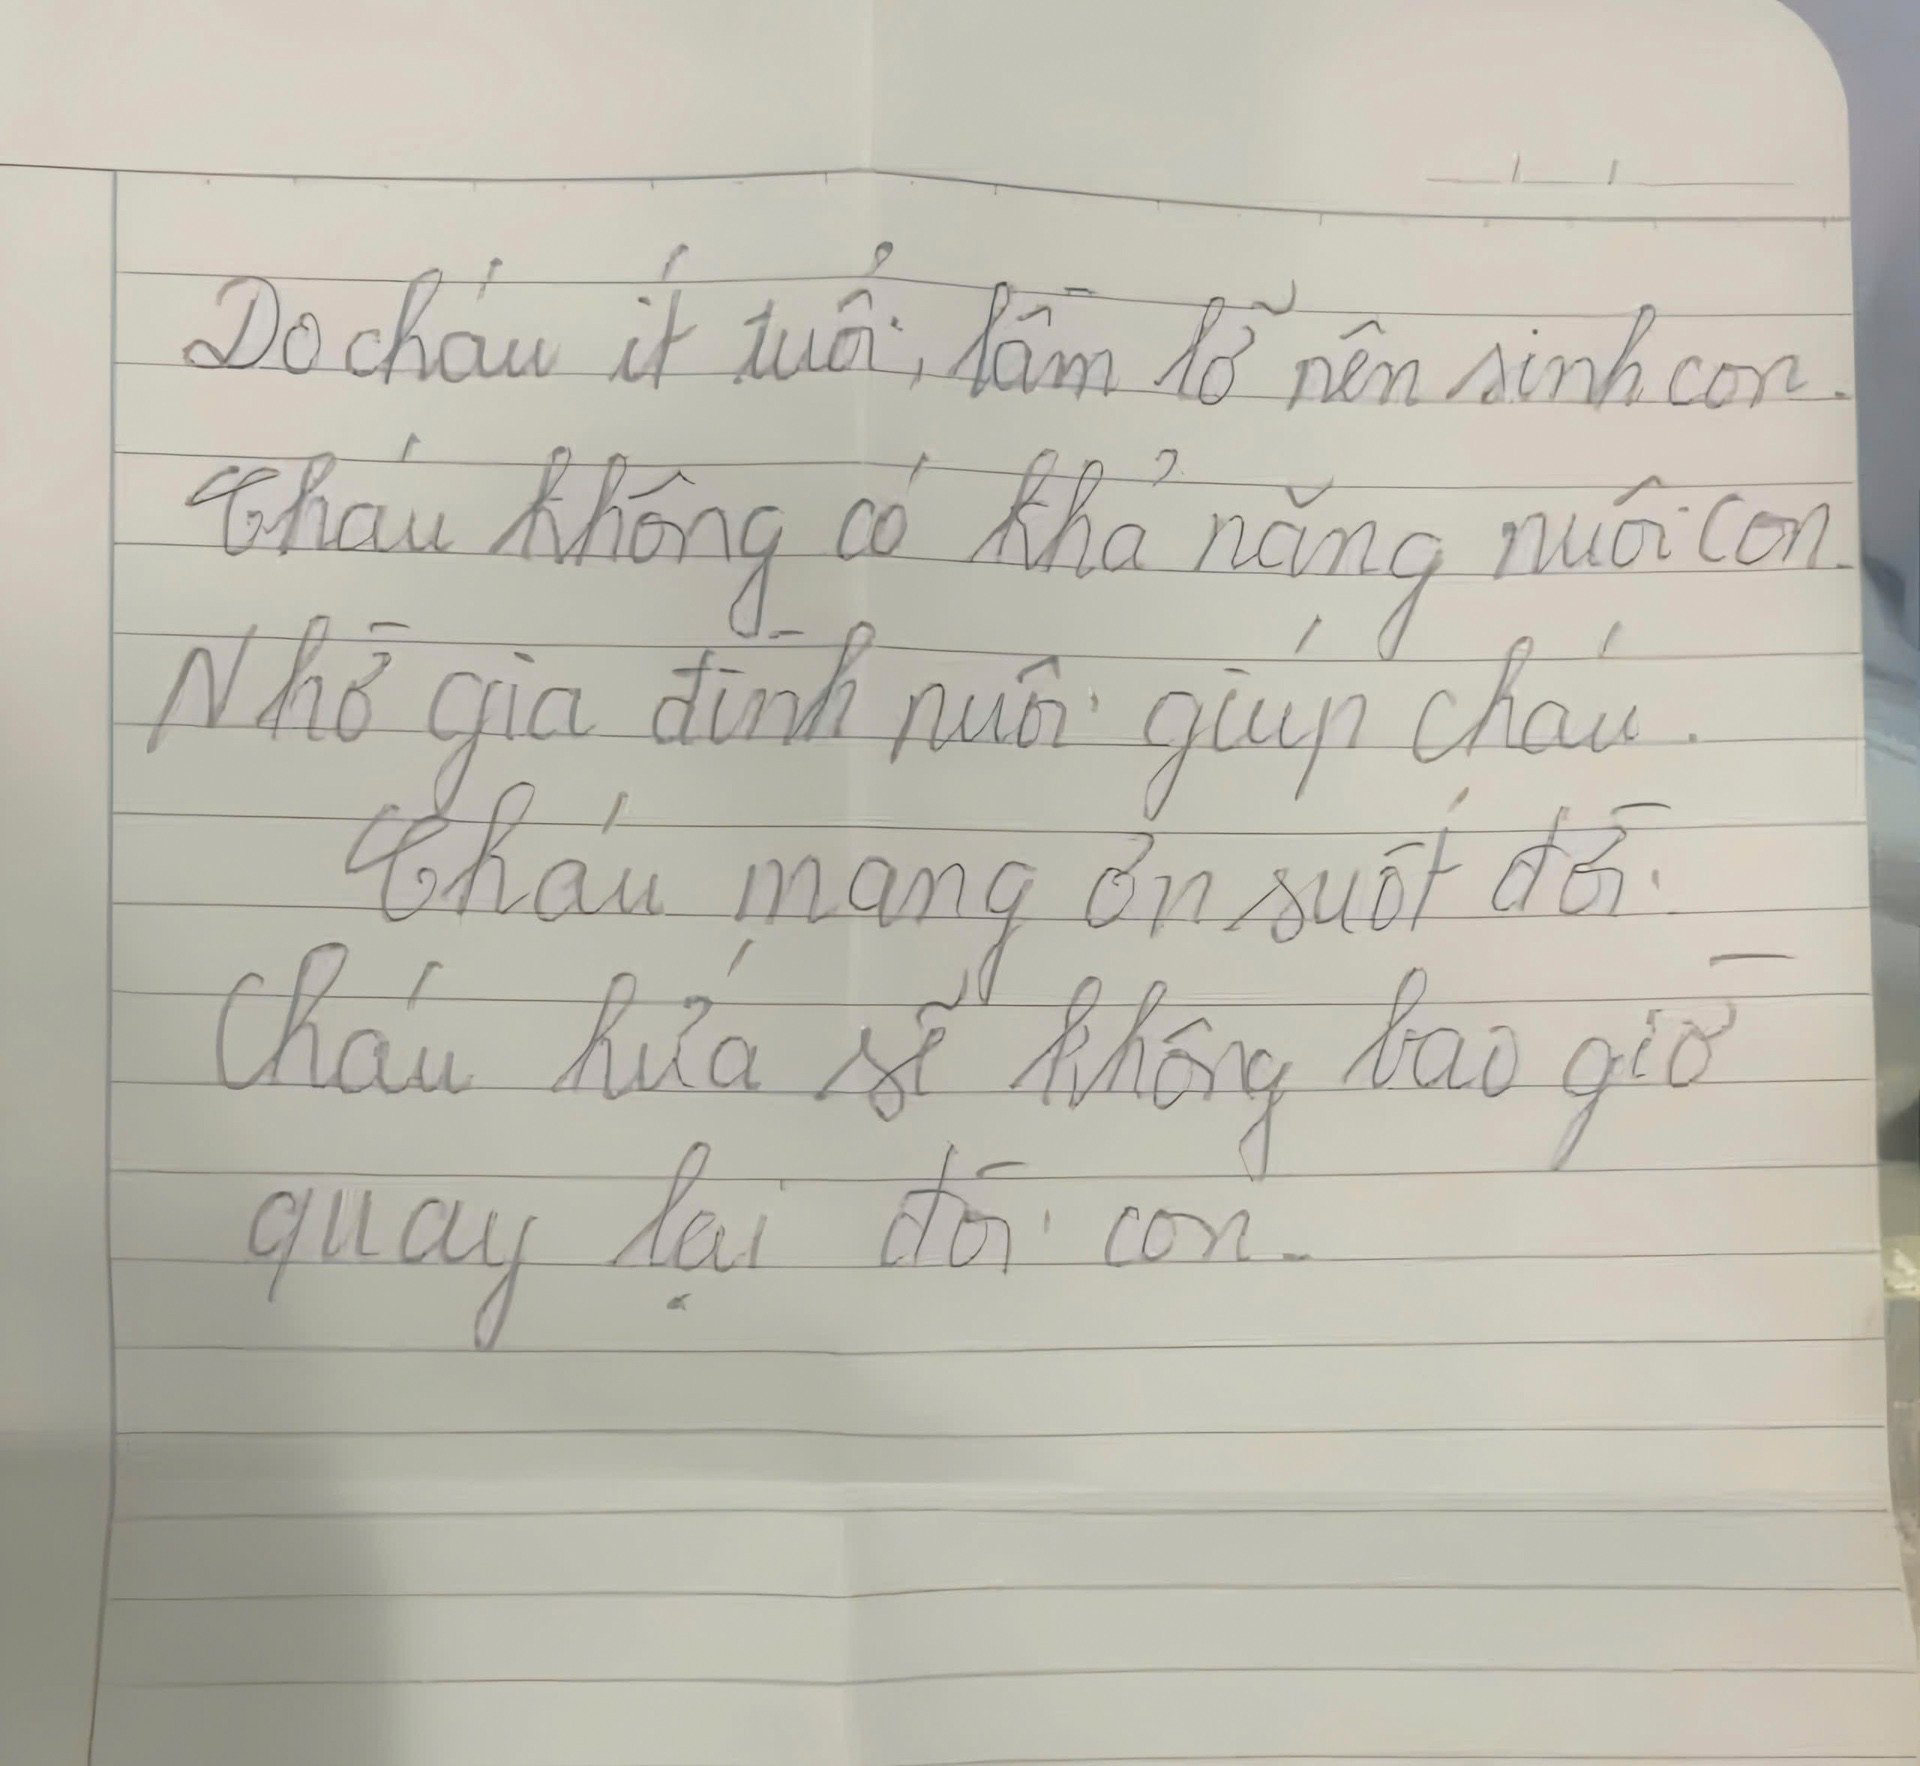 Do cháu ít tuổi, lầm lỡ nên sinh con.
Cháu không có khả năng nuôi con.
Nhờ gia đình nuôi giúp cháu.
Cháu mang ơn suốt đời.
Cháu hứa sẽ không bao giờ
quay lại đòi con.